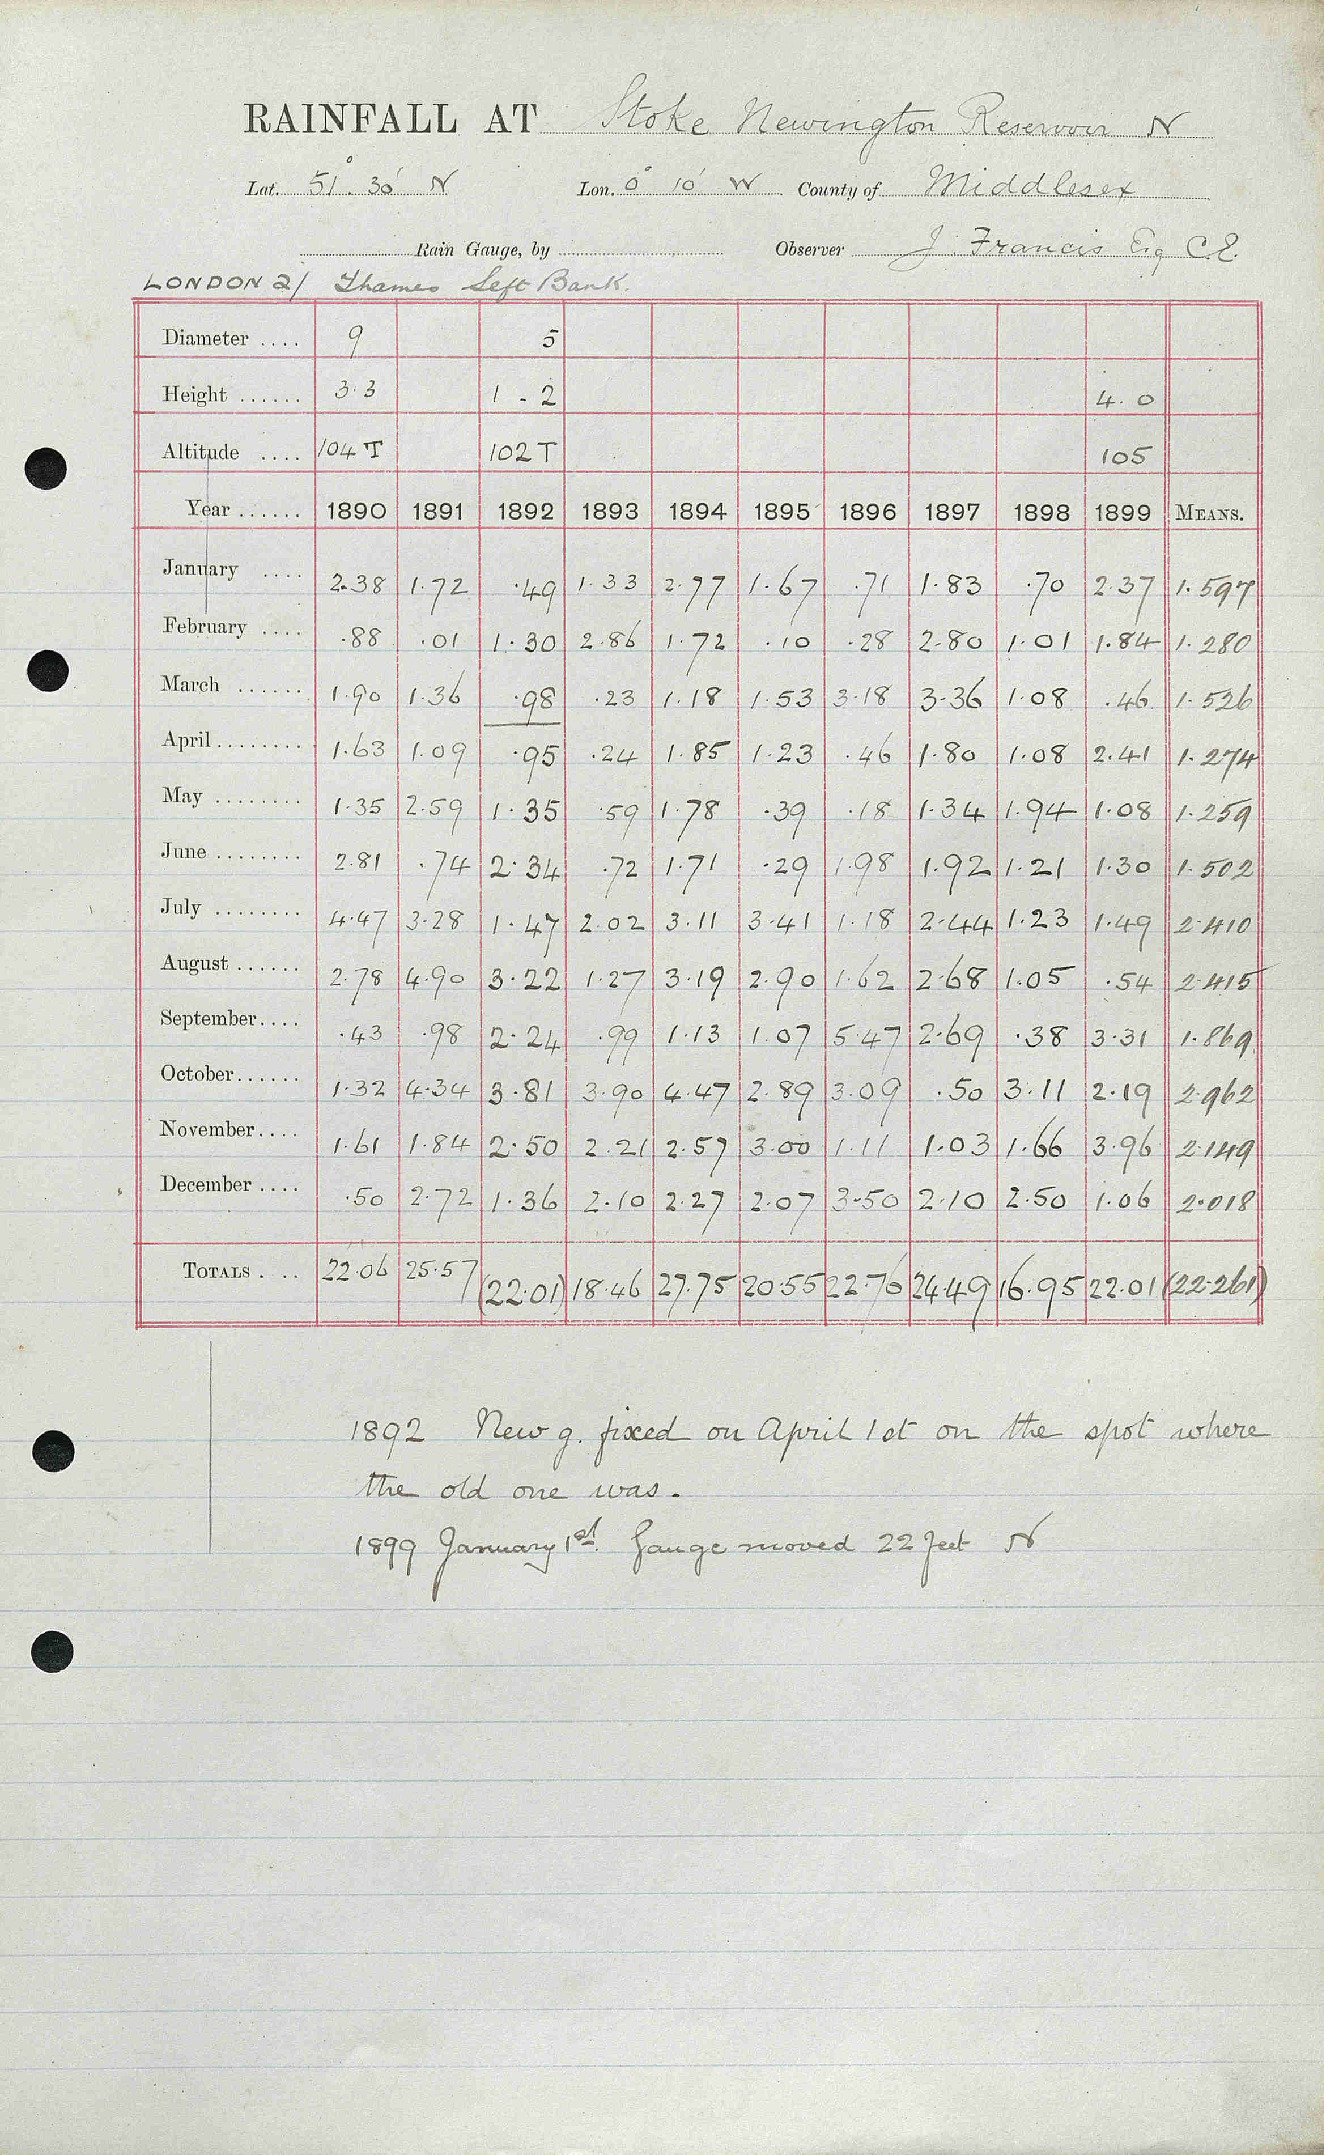 RAINFALL AT Stoke Newington Reservoir N
Lat. 51° 30' N Lon. 0° 10' W County of Middlesex
Rain Gauge, by Observer J. Francis Esq C.E.
LONDON 21 Thames Left Bank.
Diameter .... 9 5
Height ...... 3.3 1 - 2 4.0
Altitude .... 104 T 102 T 105
Year ...... 1890 1891 1892 1893 1894 1895 1896 1897 1898 1899 MEANS.
January .... 2.38 1.72 .49 1.33 2.77 1.67 .71 1.83 .70 2.37 1.597
February .... .88 .01 1.30 2.86 1.72 .10 .28 2.80 1.01 1.84 1.280
March ...... 1.90 1.36 .98 .23 1.18 1.53 3.18 3.36 1.08 .46 1.526
April ........ 1.63 1.09 .95 .24 1.85 1.23 .46 1.80 1.08 2.41 1.274
May ........ 1.35 2.59 1.35 .59 1.78 .39 .18 1.34 1.94 1.08 1.259
June ........ 2.81 .74 2.34 .72 1.71 .29 1.98 1.92 1.21 1.30 1.502
July ........ 4.47 3.28 1.47 2.02 3.11 3.41 1.18 2.44 1.23 1.49 2.410
August ...... 2.78 4.90 3.22 1.27 3.19 2.90 1.62 2.68 1.05 .54 2.415
September .... .43 .98 2.24 .99 1.13 1.07 5.47 2.69 .38 3.31 1.869
October ...... 1.32 4.34 3.81 3.90 4.47 2.89 3.09 .50 3.11 2.19 2.962
November .... 1.61 1.84 2.50 2.21 2.57 3.00 1.11 1.03 1.66 3.96 2.149
December .... .50 2.72 1.36 2.10 2.27 2.07 3.50 2.10 2.50 1.06 2.018
TOTALS .... 22.06 25.57 (22.01) 18.46 27.75 20.55 22.76 24.49 16.95 22.01 (22.261)
1892 New g. fixed on April 1st on the spot where
the old one was.
1899 January 1st. Gauge moved 22 feet N